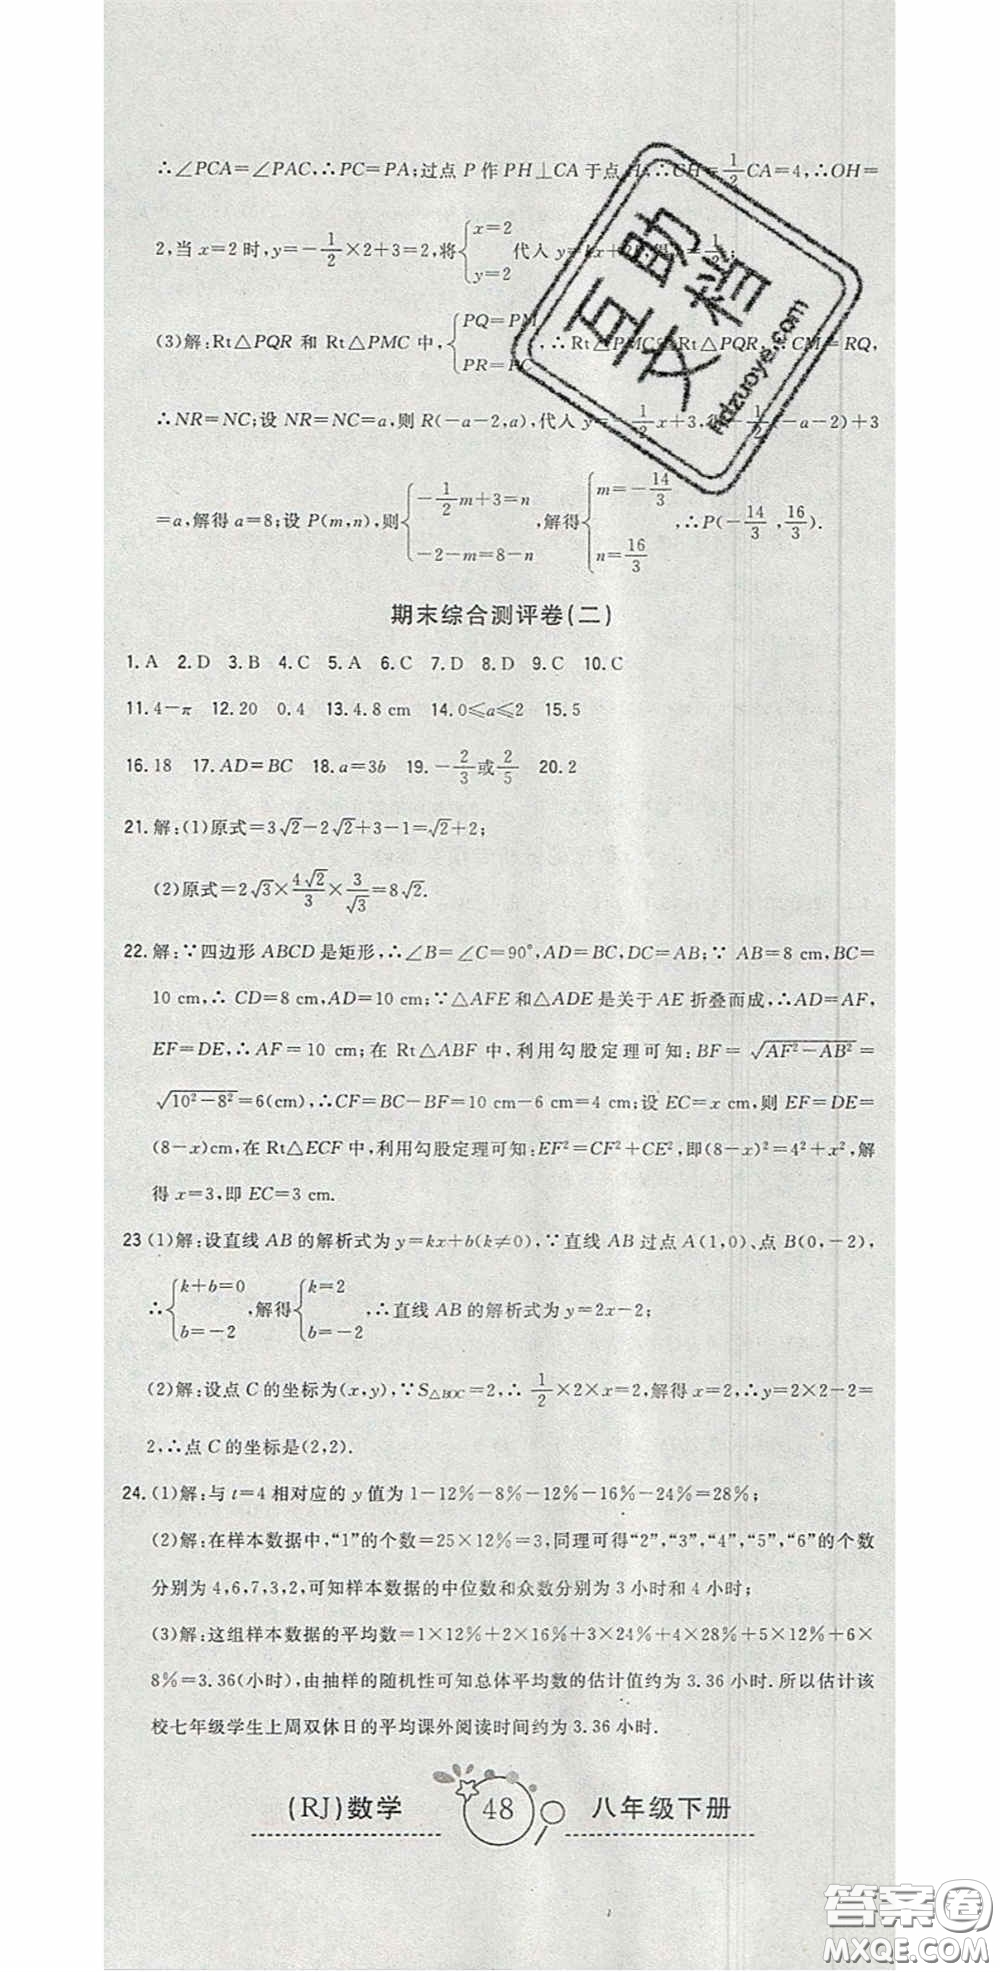 ∴∠PCA=∠PAC,∴PC=PA;过点 P 作 PH⊥CA 于点 H,∴CH=1/2CA=4,∴OH=
2,当 x=2 时,y=-1/2×2+3=2,将{x=2 y=2 代入 y=kx
(3)解:Rt△PQR 和 Rt△PMC 中,{PQ=PM PR=PC,∴Rt△PMC≌Rt△PQR,∴CM=RQ,
∴NR=NC;设 NR=NC=a,则 R(-a-2,a),代入 y=-1/2x+3,得-1/2(-a-2)+3
=a,解得 a=8;设 P(m,n),则{-1/2m+3=n -2-m=8-n,解得{m=-14/3 n=16/3,∴P(-14/3,16/3).
期末综合测评卷(二)
1.A 2.D 3.B 4.C 5.A 6.C 7.D 8.D 9.C 10.C
11.4-π 12.20 0.4 13.4.8 cm 14.0≤a≤2 15.5
16.18 17.AD=BC 18.a=3b 19.-2/3或2/5 20.2
21.解:(1)原式=3√2-2√2+3-1=√2+2;
(2)原式=2√3×4√2/3×3/√3=8√2.
22.解:∵四边形 ABCD 是矩形,∴∠B=∠C=90°,AD=BC,DC=AB;∵ AB=8 cm,BC=
10 cm,∴ CD=8 cm,AD=10 cm;∵△AFE 和△ADE 是关于 AE 折叠而成,∴AD=AF,
EF=DE,∴AF=10 cm;在 Rt△ABF 中,利用勾股定理可知:BF=√(AF²-AB²)=
√(10²-8²)=6(cm),∴CF=BC-BF=10 cm-6 cm=4 cm;设 EC=x cm,则 EF=DE=
(8-x)cm,在 Rt△ECF 中,利用勾股定理可知:EF²=CF²+CE²,即(8-x)²=4²+x²,解
得 x=3,即 EC=3 cm.
23 (1)解:设直线 AB 的解析式为 y=kx+b(k≠0),∵直线 AB 过点 A(1,0)、点 B(0,-2),
∴{k+b=0 b=-2,解得{k=2 b=-2,∴直线 AB 的解析式为 y=2x-2;
(2)解:设点 C 的坐标为(x,y),∵S△BOC=2,∴1/2×2×x=2,解得 x=2,∴y=2×2-2=
2,∴点 C 的坐标是(2,2).
24.(1)解:与 t=4 相对应的 y 值为 1-12%-8%-12%-16%-24%=28%;
(2)解:在样本数据中,“1”的个数=25×12%=3,同理可得“2”,“3”,“4”,“5”,“6”的个数
分别为 4,6,7,3,2,可知样本数据的中位数和众数分别为 3 小时和 4 小时;
(3)解:这组样本数据的平均数=1×12%+2×16%+3×24%+4×28%+5×12%+6×
8%=3.36(小时),由抽样的随机性可知总体平均数的估计值约为 3.36 小时.所以估计该
校七年级学生上周双休日的平均课外阅读时间约为 3.36 小时.
(RJ)数学 48 八年级下册
互助文档
hdzuoye.com
答案卷
MXQE.COM